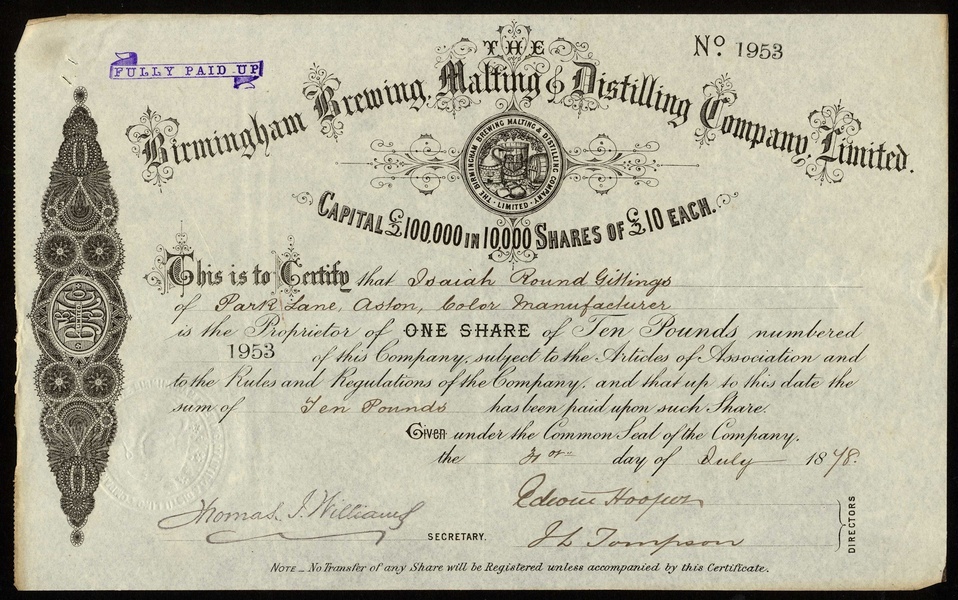 FULLY PAID UP
No. 1953
THE
Birmingham Brewing, Malting & Distilling Company, Limited.
THE BIRMINGHAM BREWING MALTING & DISTILLING COMPANY LIMITED
CAPITAL £100,000 IN 10,000 SHARES OF £10 EACH.
This is to Certify that Isaiah Round Gittings
of Park Lane, Aston, Color Manufacturer
is the Proprietor of ONE SHARE of Ten Pounds numbered
1953 of this Company, subject to the Articles of Association and
to the Rules and Regulations of the Company, and that up to this date the
sum of Ten Pounds has been paid upon such Share.
Given under the Common Seal of the Company.
the day of July 1878.
Thomas J. Williams
SECRETARY.
Edwin Hooper
J L Tompson
DIRECTORS
NOTE_ No Transfer of any Share will be Registered unless accompanied by this Certificate.